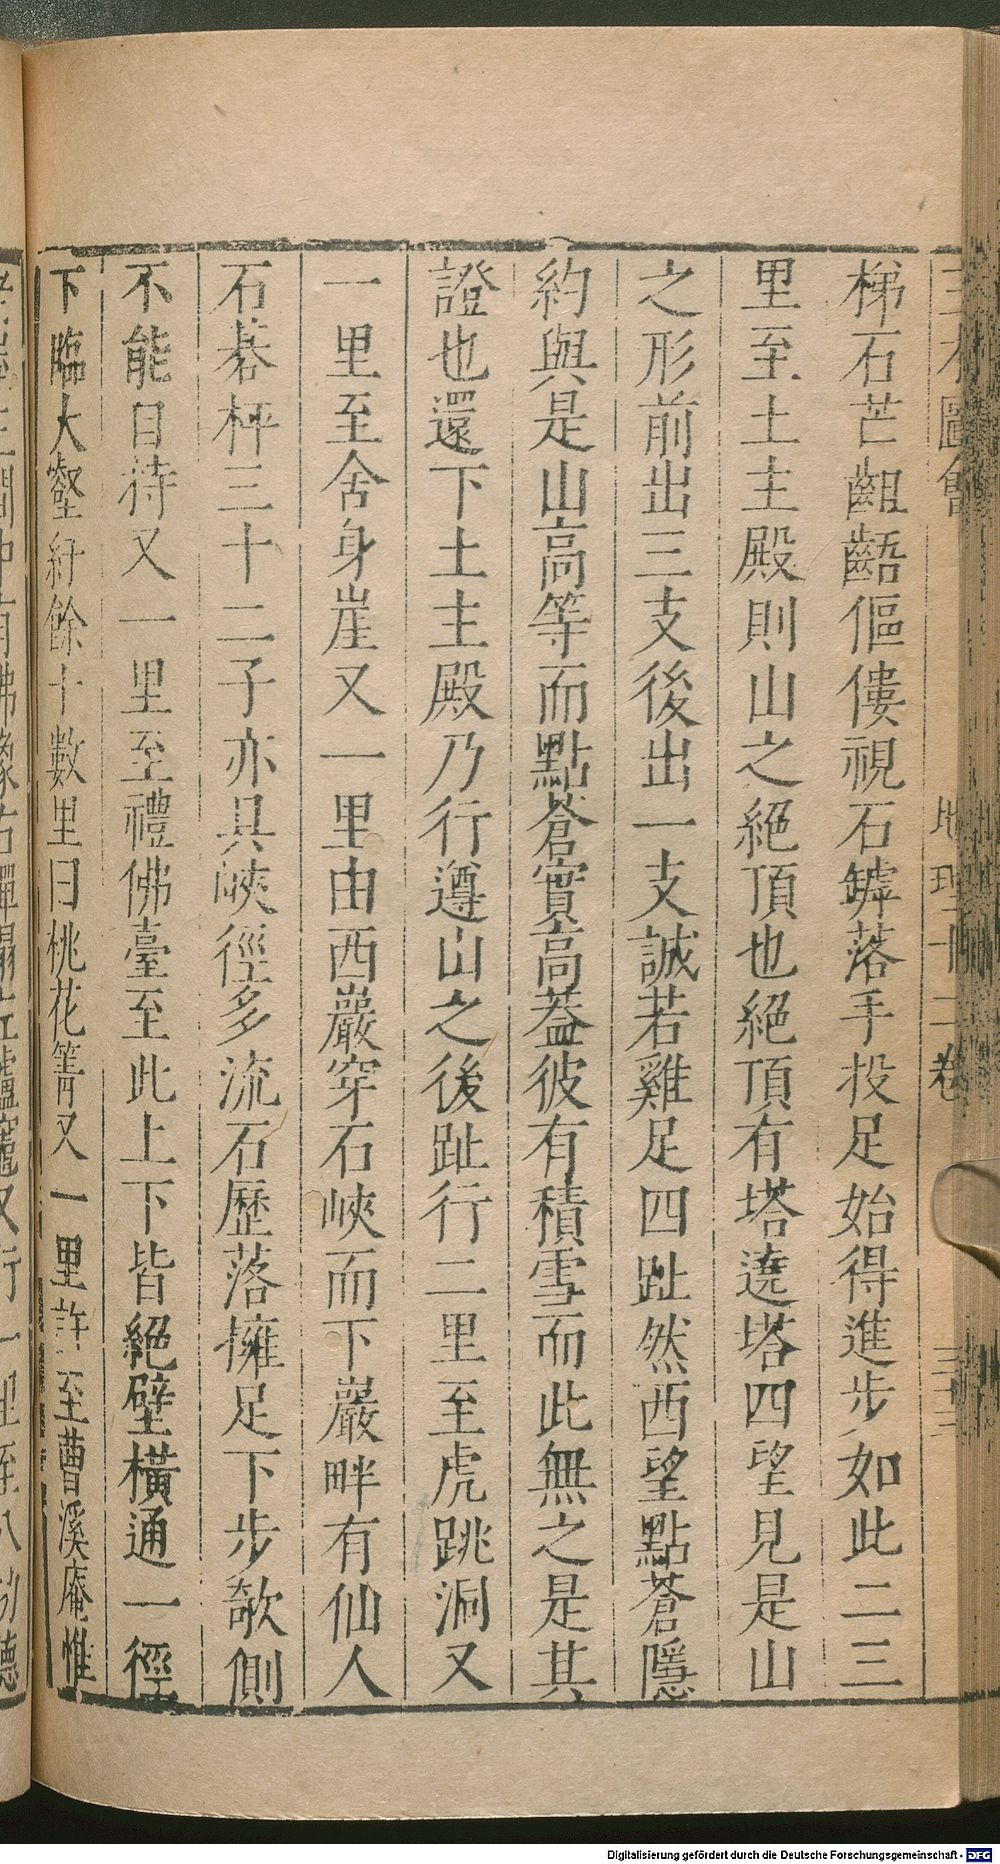 三才圖會 地理十二卷
梯石芒齟齬傴僂視石罅落手投足始得進步如此二三
里至土主殿則山之絕頂也絕頂有塔遶塔四望見是山
之形前出三支後出一支誠若雞足四趾然西望點蒼隱
約與是山高等而點蒼實高葢彼有積雪而此無之是其
證也還下土主殿乃行遵山之後趾行二里至虎跳洞又
一里至舍身崖又一里由西巖穿石峽而下巖畔有仙人
石棊枰三十二子亦具峽徑多流石歷落擁足下步欹側
不能日待又一里至禮佛臺至此上下皆絕壁橫通一徑
下臨大壑紆餘十數里曰桃花箐又一里許至曹溪庵惟
Digitalisierung gefördert durch die Deutsche Forschungsgemeinschaft - DFG